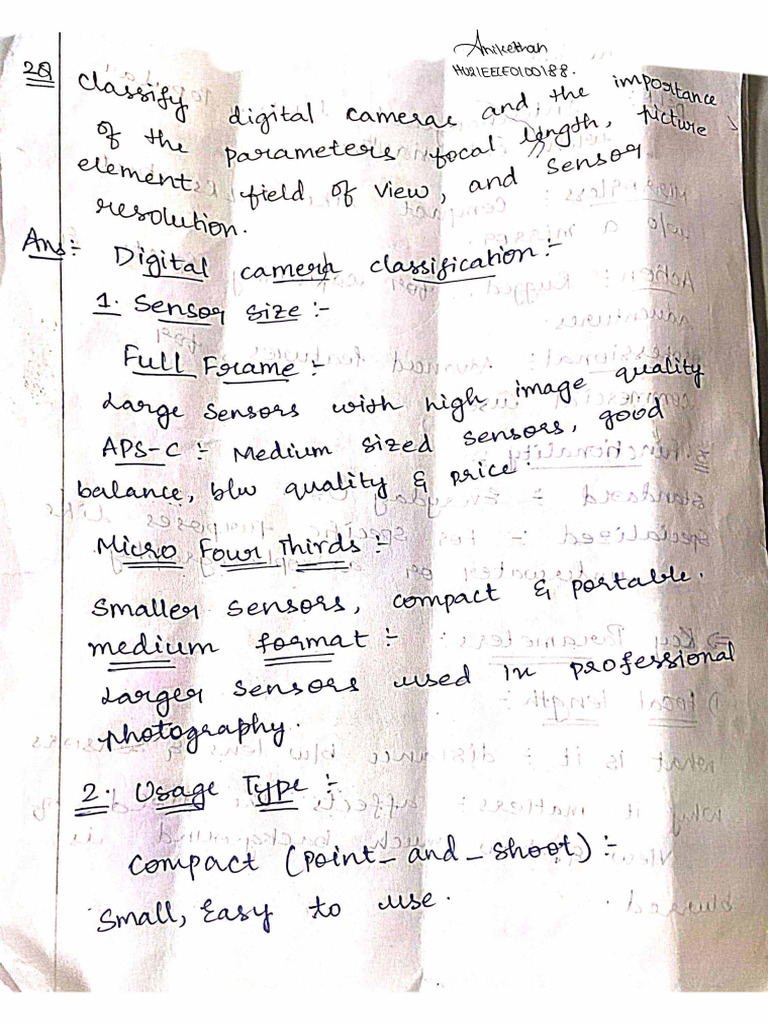 Anikethan
HU21EECE0100188.
2Q
Classify digital cameras and the importance
of the parameters focal length, picture
element field of view, and sensor
resolution.
Ans:- Digital camera classification:-
1. Sensor Size:-
Full Frame:-
Large sensors with high image quality
APS-C:- Medium sized sensors, good
balance, b/w quality & price.
Micro Four Thirds:-
Smaller sensors, compact & portable.
medium format:-
Larger sensors used in professional
photography.
2. Usage Type:-
Compact (point-and-shoot):-
Small, Easy to use.